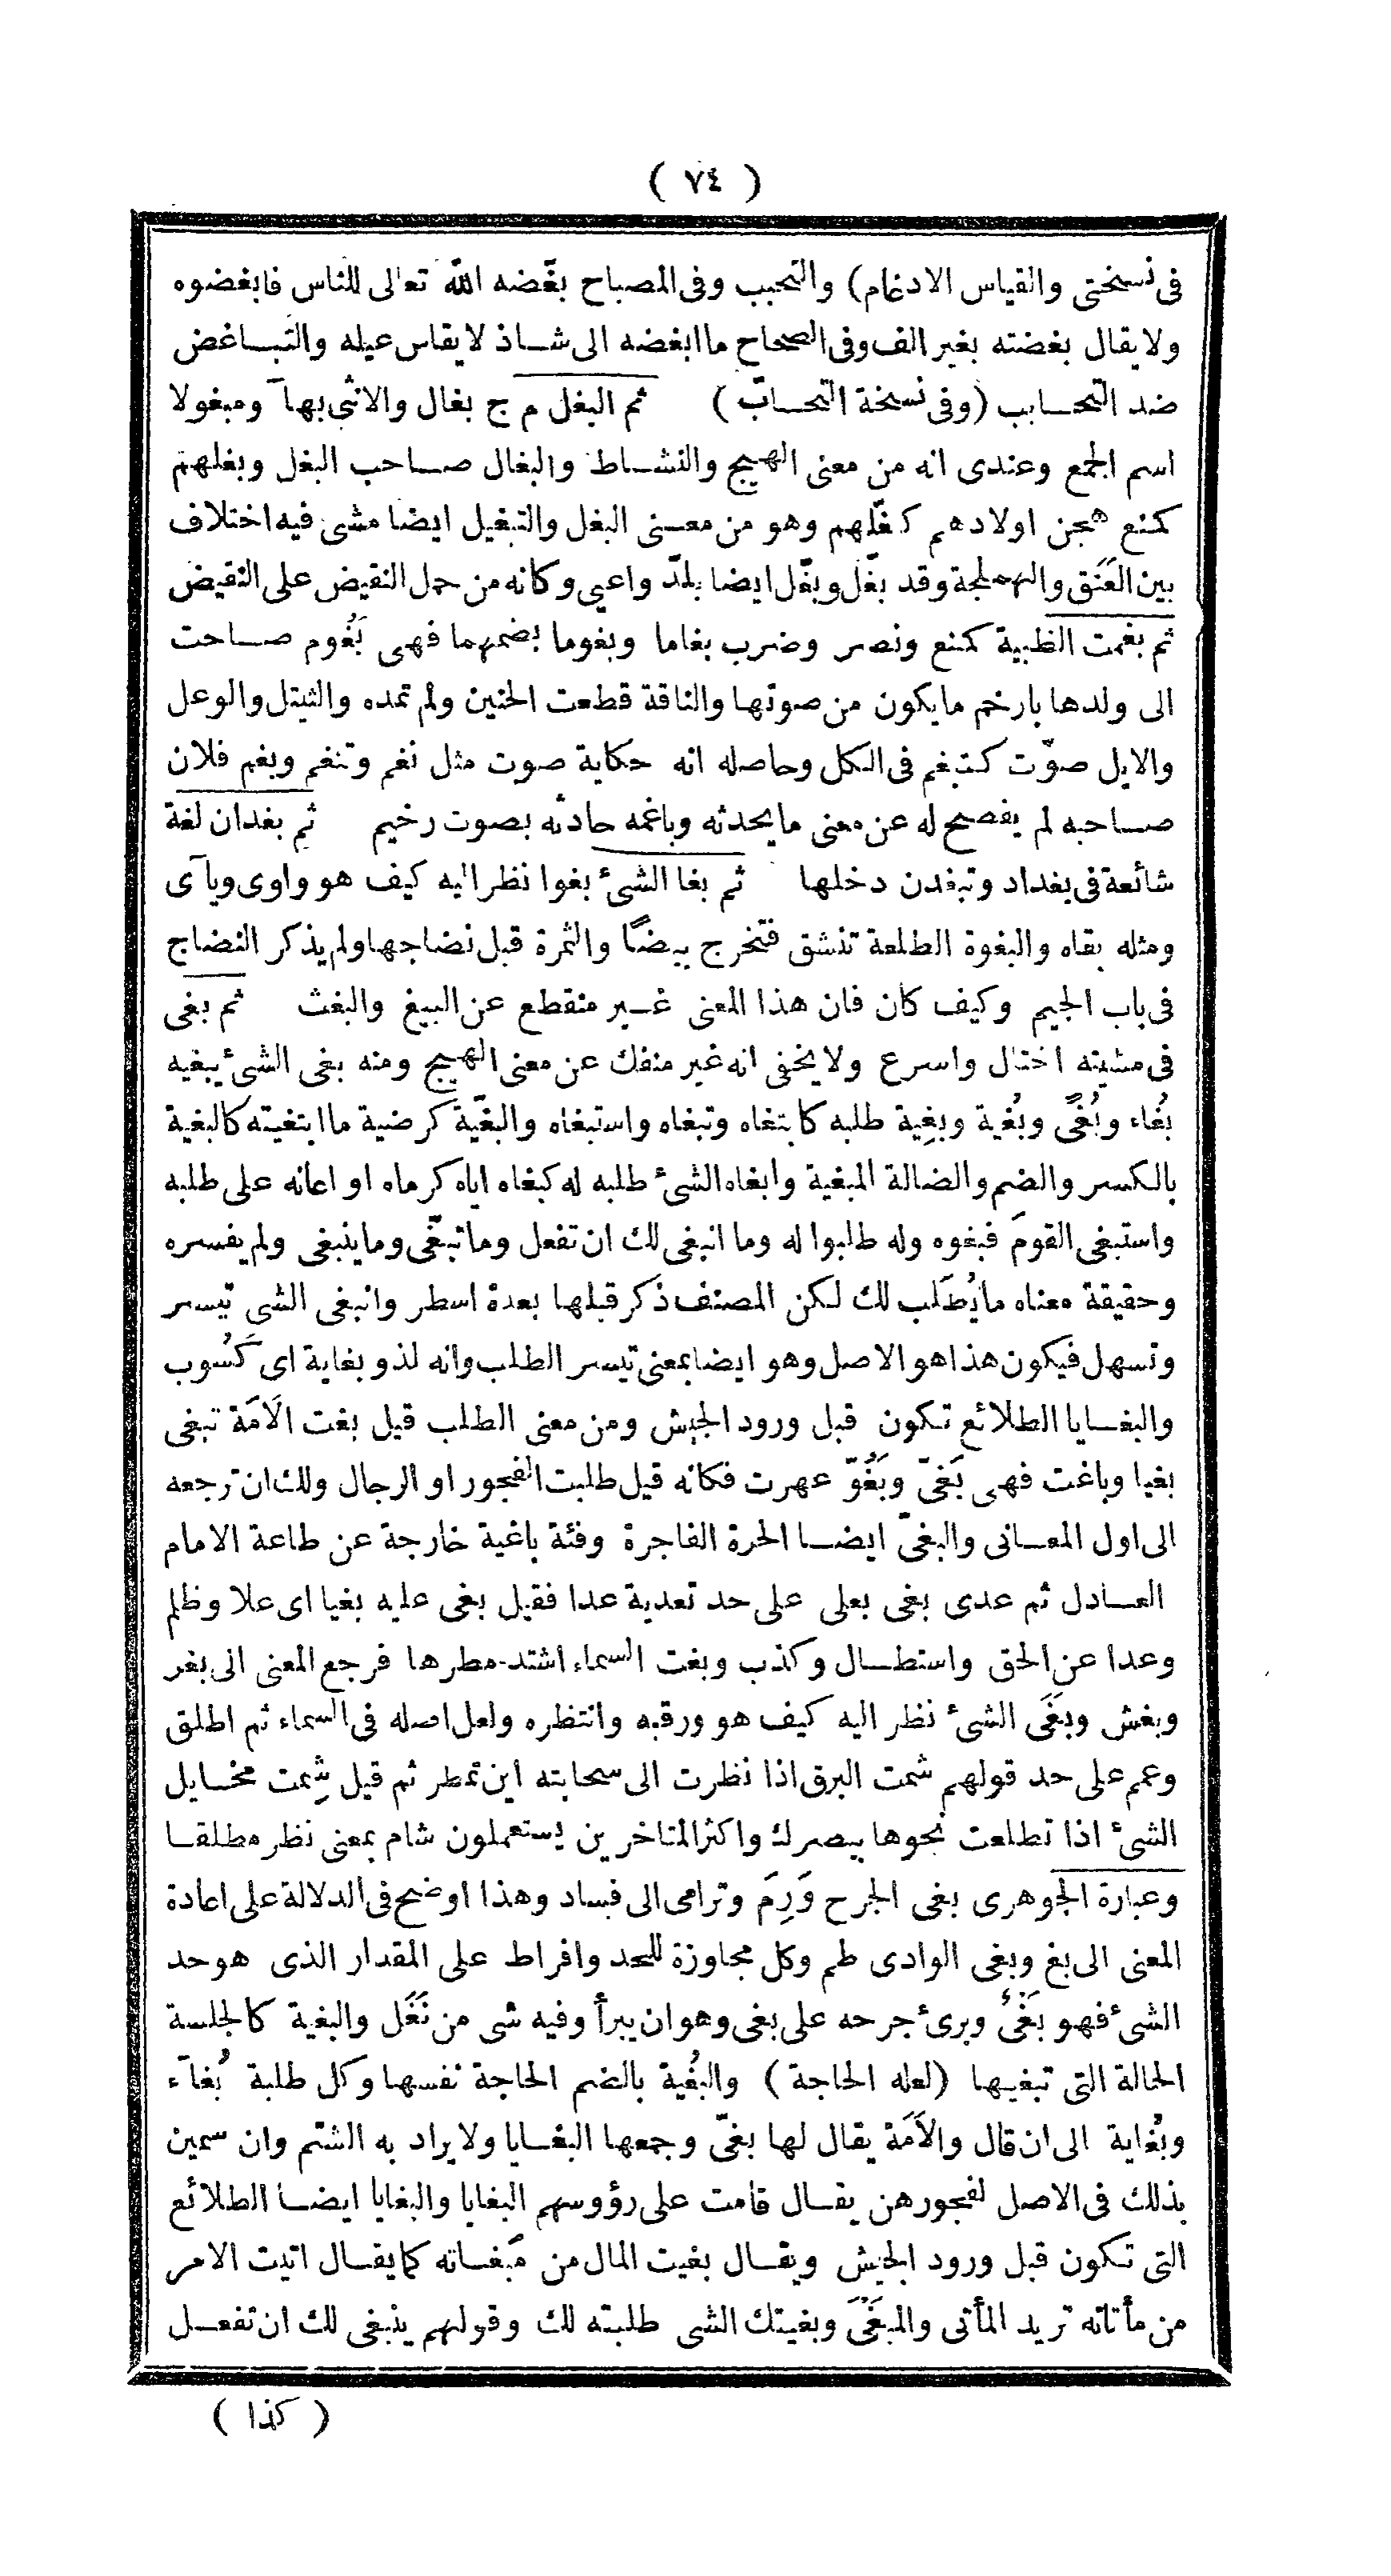 ( ٧٤ )
فى نسختى والقياس الادغام) والتحبب وفى المصباح بغّضه اللّه تعالى للناس فابغضوه
ولا يقال بغضته بغير الف وفى الصحاح ما ابغضه الى شاذ لا يقاس عيله والتباغض
ضد التحابب (وفى نسخة التحابّ) ثم البغل م ج بغال والانثى بهآ ومبغولا
اسم الجمع وعندى انه من معنى الهيج والنشاط والبغال صاحب البغل وبغلهم
كمنع هجن اولادهم كغّلهم وهو من معنى البغل والتبغيل ايضا مشى فيه اختلاف
بين العَنَق والهملجة وقد بغّل وبغّل ايضا بلّد واعيى وكانه من حمل النقيض على النقيض
ثم بغمت الظبية كمنع ونصر وضرب بغاما وبغوما بضمهما فهى بَغُوم صاحت
الى ولدها بارخم ما يكون من صوتها والناقة قطعت الحنين ولم تمده والثيتل والوعل
والايل صوّت كتبغم فى الكل وحاصله انه حكاية صوت مثل نغم وتنغم وبغم فلان
صاحبه لم يفصح له عن معنى ما يحدثه وباغمه حادثه بصوت رخيم ثم بغدان لغة
شائعة فى بغداد وتبغدن دخلها ثم بغا الشئ بغوا نظر اليه كيف هو واوى ويآى
ومثله بقاه والبغوة الطلعة تنشق فتخرج بيضًا والثمرة قبل نضاجها ولم يذكر النضاج
فى باب الجيم وكيف كان فان هذا المعنى غير منقطع عن البيغ والبغث ثم بغى
فى مشيته اختال واسرع ولا يخفى انه غير منفك عن معنى الهيج ومنه بغى الشئ يبغيه
بُغاء وبُغًى وبُغية وبِغية طلبه كابتغاه وتبغاه واستبغاه والبغّية كرضية ما ابتغيته كالبغية
بالكسر والضم والضالة المبغية وابغاه الشئ طلبه له كبغاه اياه كرماه او اعانه على طلبه
واستبغى القومَ فبغوه وله طلبوا له وما انبغى لك ان تفعل وما تبغّى وما ينبغى ولم يفسره
وحقيقة معناه ما يُطلَب لك لكن المصنف ذكر قبلها بعدة اسطر وانبغى الشى تيسر
وتسهل فيكون هذا هو الاصل وهو ايضا بمعنى تيسر الطلب وانه لذو بغاية اى كَسُوب
والبغايا الطلائع تكون قبل ورود الجيش ومن معنى الطلب قيل بغت الاَمَة تبغى
بغيا وباغت فهى بَغىّ وبَغُوّ عهرت فكانه قيل طلبت الفجور او الرجال ولك ان ترجعه
الى اول المعانى والبغىّ ايضا الحرة الفاجرة وفئة باغية خارجة عن طاعة الامام
العادل ثم عدى بغى بعلى على حد تعدية عدا فقيل بغى عليه بغيا اى علا وظلم
وعدا عن الحق واستطال وكذب وبغت السماء اشتد مطرها فرجع المعنى الى بغر
وبغش وبَغَى الشئ نظر اليه كيف هو ورقبه وانتظره ولعل اصله فى السماء ثم اطلق
وعمم على حد قولهم شمت البرق اذا نظرت الى سحابته اين تمطر ثم قيل شِمت مخايل
الشئ اذا تطلعت نحوها ببصرك واكثر المتاخرين يستعملون شام بمعنى نظر مطلقا
وعبارة الجوهرى بغى الجرح وَرِمَ وترامى الى فساد وهذا اوضح فى الدلالة على اعادة
المعنى الى بغ وبغى الوادى طم وكل مجاوزة للحد وافراط على المقدار الذى هو حد
الشئ فهو بَغْىٌ وبرئ جرحه على بغى وهو ان يبرأ وفيه شى من نَغَل والبغية كالجلسة
الحالة التى تبغيها (لعله الحاجة) والبُغية بالضم الحاجة نفسها وكل طلبة بُغآء
وبُغاية الى ان قال والاَمَة يقال لها بغىّ وجمعها البغايا ولا يراد به الشتم وان سمين
بذلك فى الاصل لفجورهن يقال قامت على رؤوسهم البغايا والبغايا ايضا الطلائع
التى تكون قبل ورود الجيش ويقال بغيت المال من مَبغاته كما يقال اتيت الامر
من مأتاته تريد المأتى والمَبغَى وبغيتك الشى طلبته لك وقولهم ينبغى لك ان تفعل
( كذا )